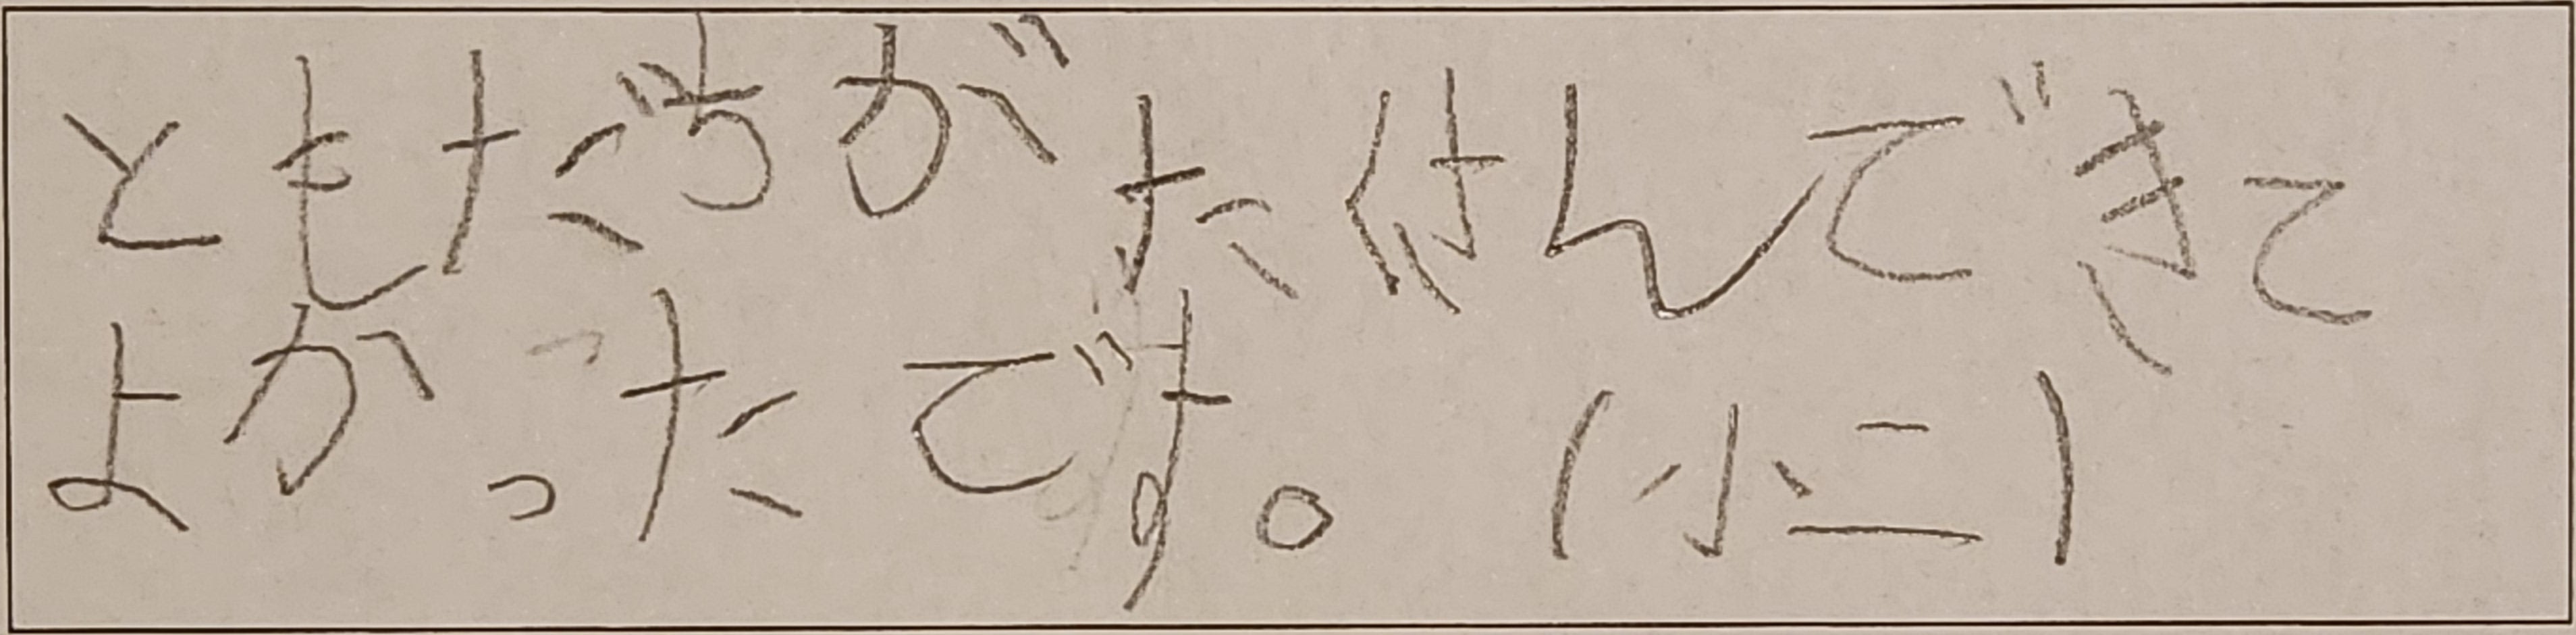 ともだちがたくさんできて
よかったです。 (小二)